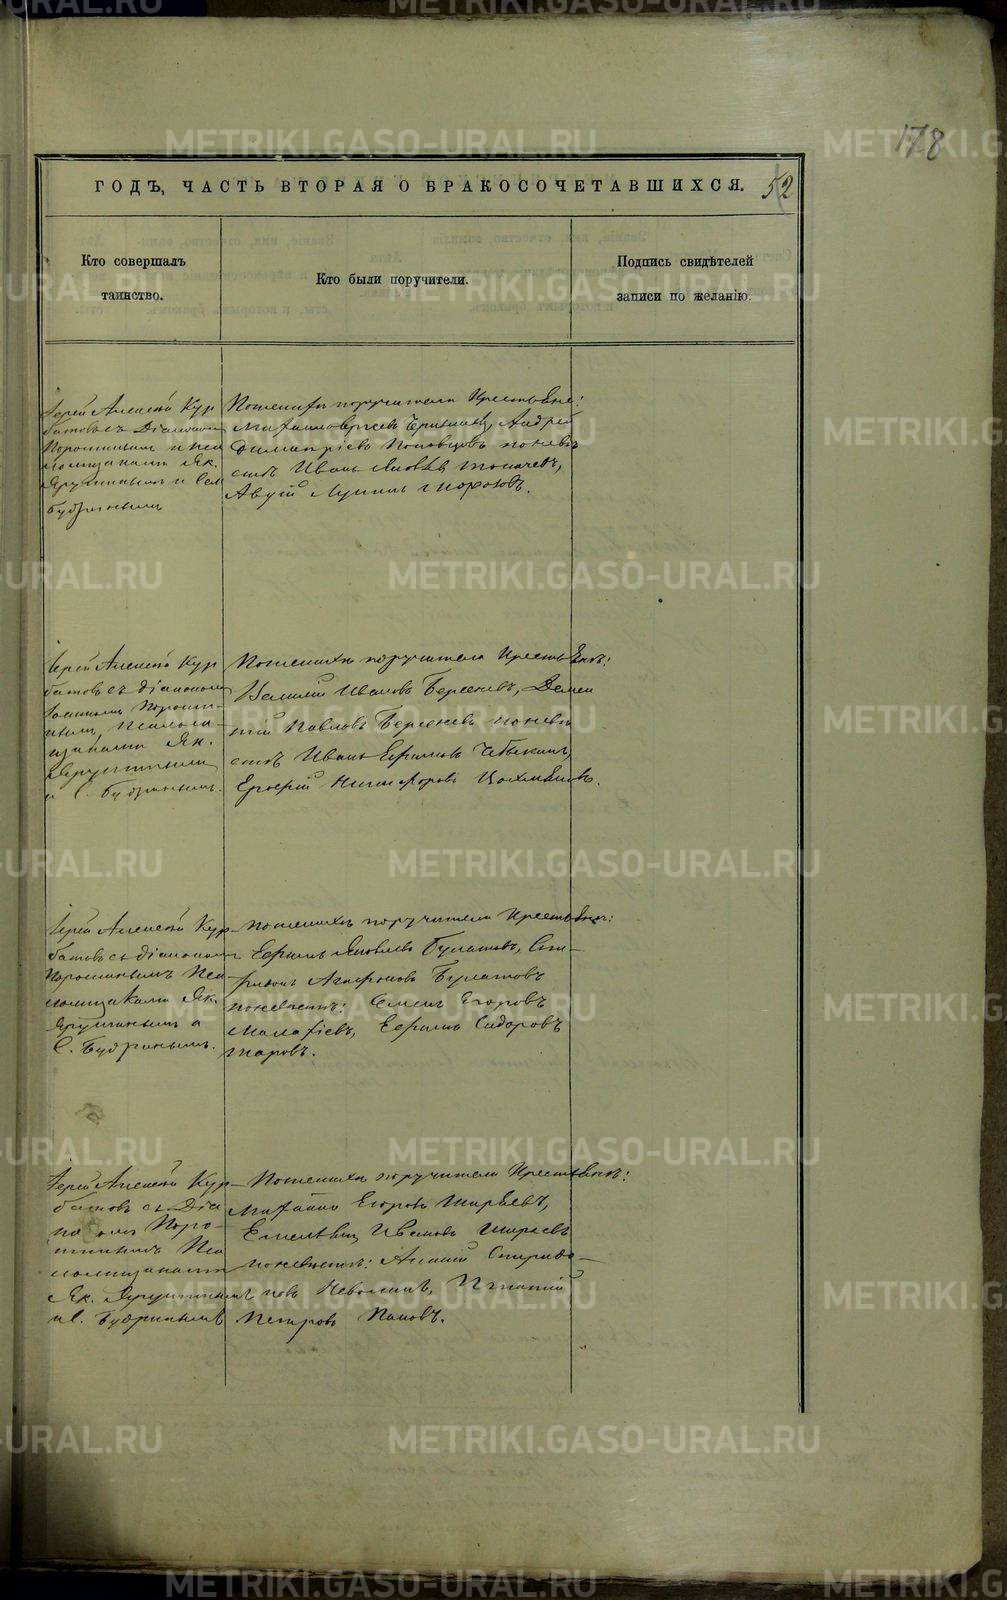 178
ГОДЪ, ЧАСТЬ ВТОРАЯ О БРАКОСОЧЕТАВШИХСЯ. 52
Кто совершалъ
таинство.
Кто были поручители.
Подпись свидѣтелей
записи по желанію.
Іерей Алексѣй Кур
батовъ съ Діакономъ
Порошинымъ и пса
ломщиками Як.
и Сем
Будринымъ
По женихѣ поручители крестьяне:
Андрей
Димитріевъ по невѣ
стѣ Иванъ Яковлевъ
Іерей Алексѣй Кур
батовъ съ діакономъ
Іоанномъ Порош-
инымъ, псалом-
щиками Як.
и С. Будринымъ.
По женихѣ поручители крестьяне:
Василій Ивановъ Берсеневъ, Демен
тій Павловъ Берсеневъ по невѣ
стѣ Иванъ Ефимовъ Чебыкинъ,
Никифоровъ
Іерей Алексѣй Кур
батовъ съ діакономъ
Порошинымъ Пса
ломщиками Як.
и
С. Будринымъ.
По женихѣ поручители крестьяне:
Ефимъ Яковлевъ Булатовъ, Спи
ридонъ Агафоновъ Булатовъ
по невѣстѣ: Семенъ Егоровъ
Малафѣевъ, Ефимъ Сидоровъ
Іерей Алексѣй Кур
батовъ съ Діа
кономъ Поро-
шинымъ Пса
ломщиками
Як.
и С. Будринымъ
По женихѣ поручители крестьяне:
Михаилъ Егоровъ Ширяевъ,
Емельянъ Ивановъ Ширяевъ
по невѣстѣ: Спиридо-
новъ Неволинъ, Игнатій
Петровъ Поповъ.
METRIKI.GASO-URAL.RU